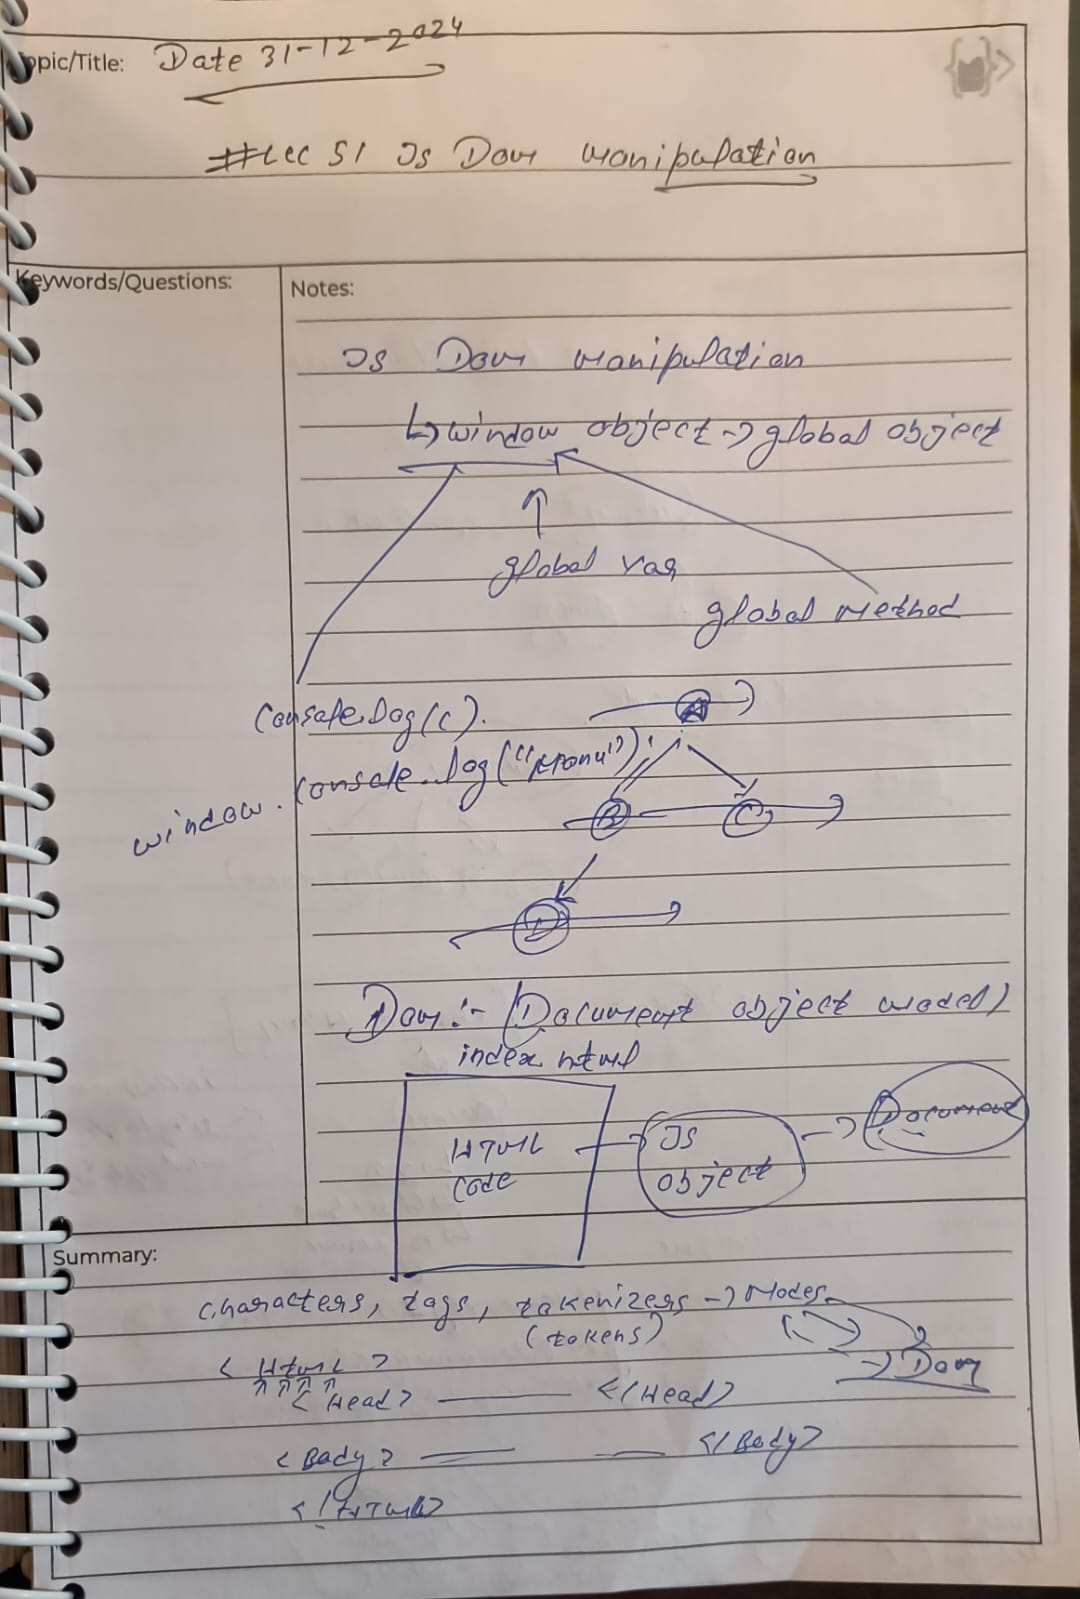 Topic/Title: Date 31-12-2024
#Lec 51 Js Dom manipulation
Keywords/Questions:
Notes:
Js Dom manipulation
↳ window object → global object
global var
global method
console.log(c).
A
window. console.log(" ");
B C
D
Dom :- (Document object model)
index.html
HTML code → JS object → Document
Summary:
characters, tags, tokenizers → Nodes
(tokens)
→ Dom
< Html >
< Head > </Head>
< Body > </Body>
</HTML>